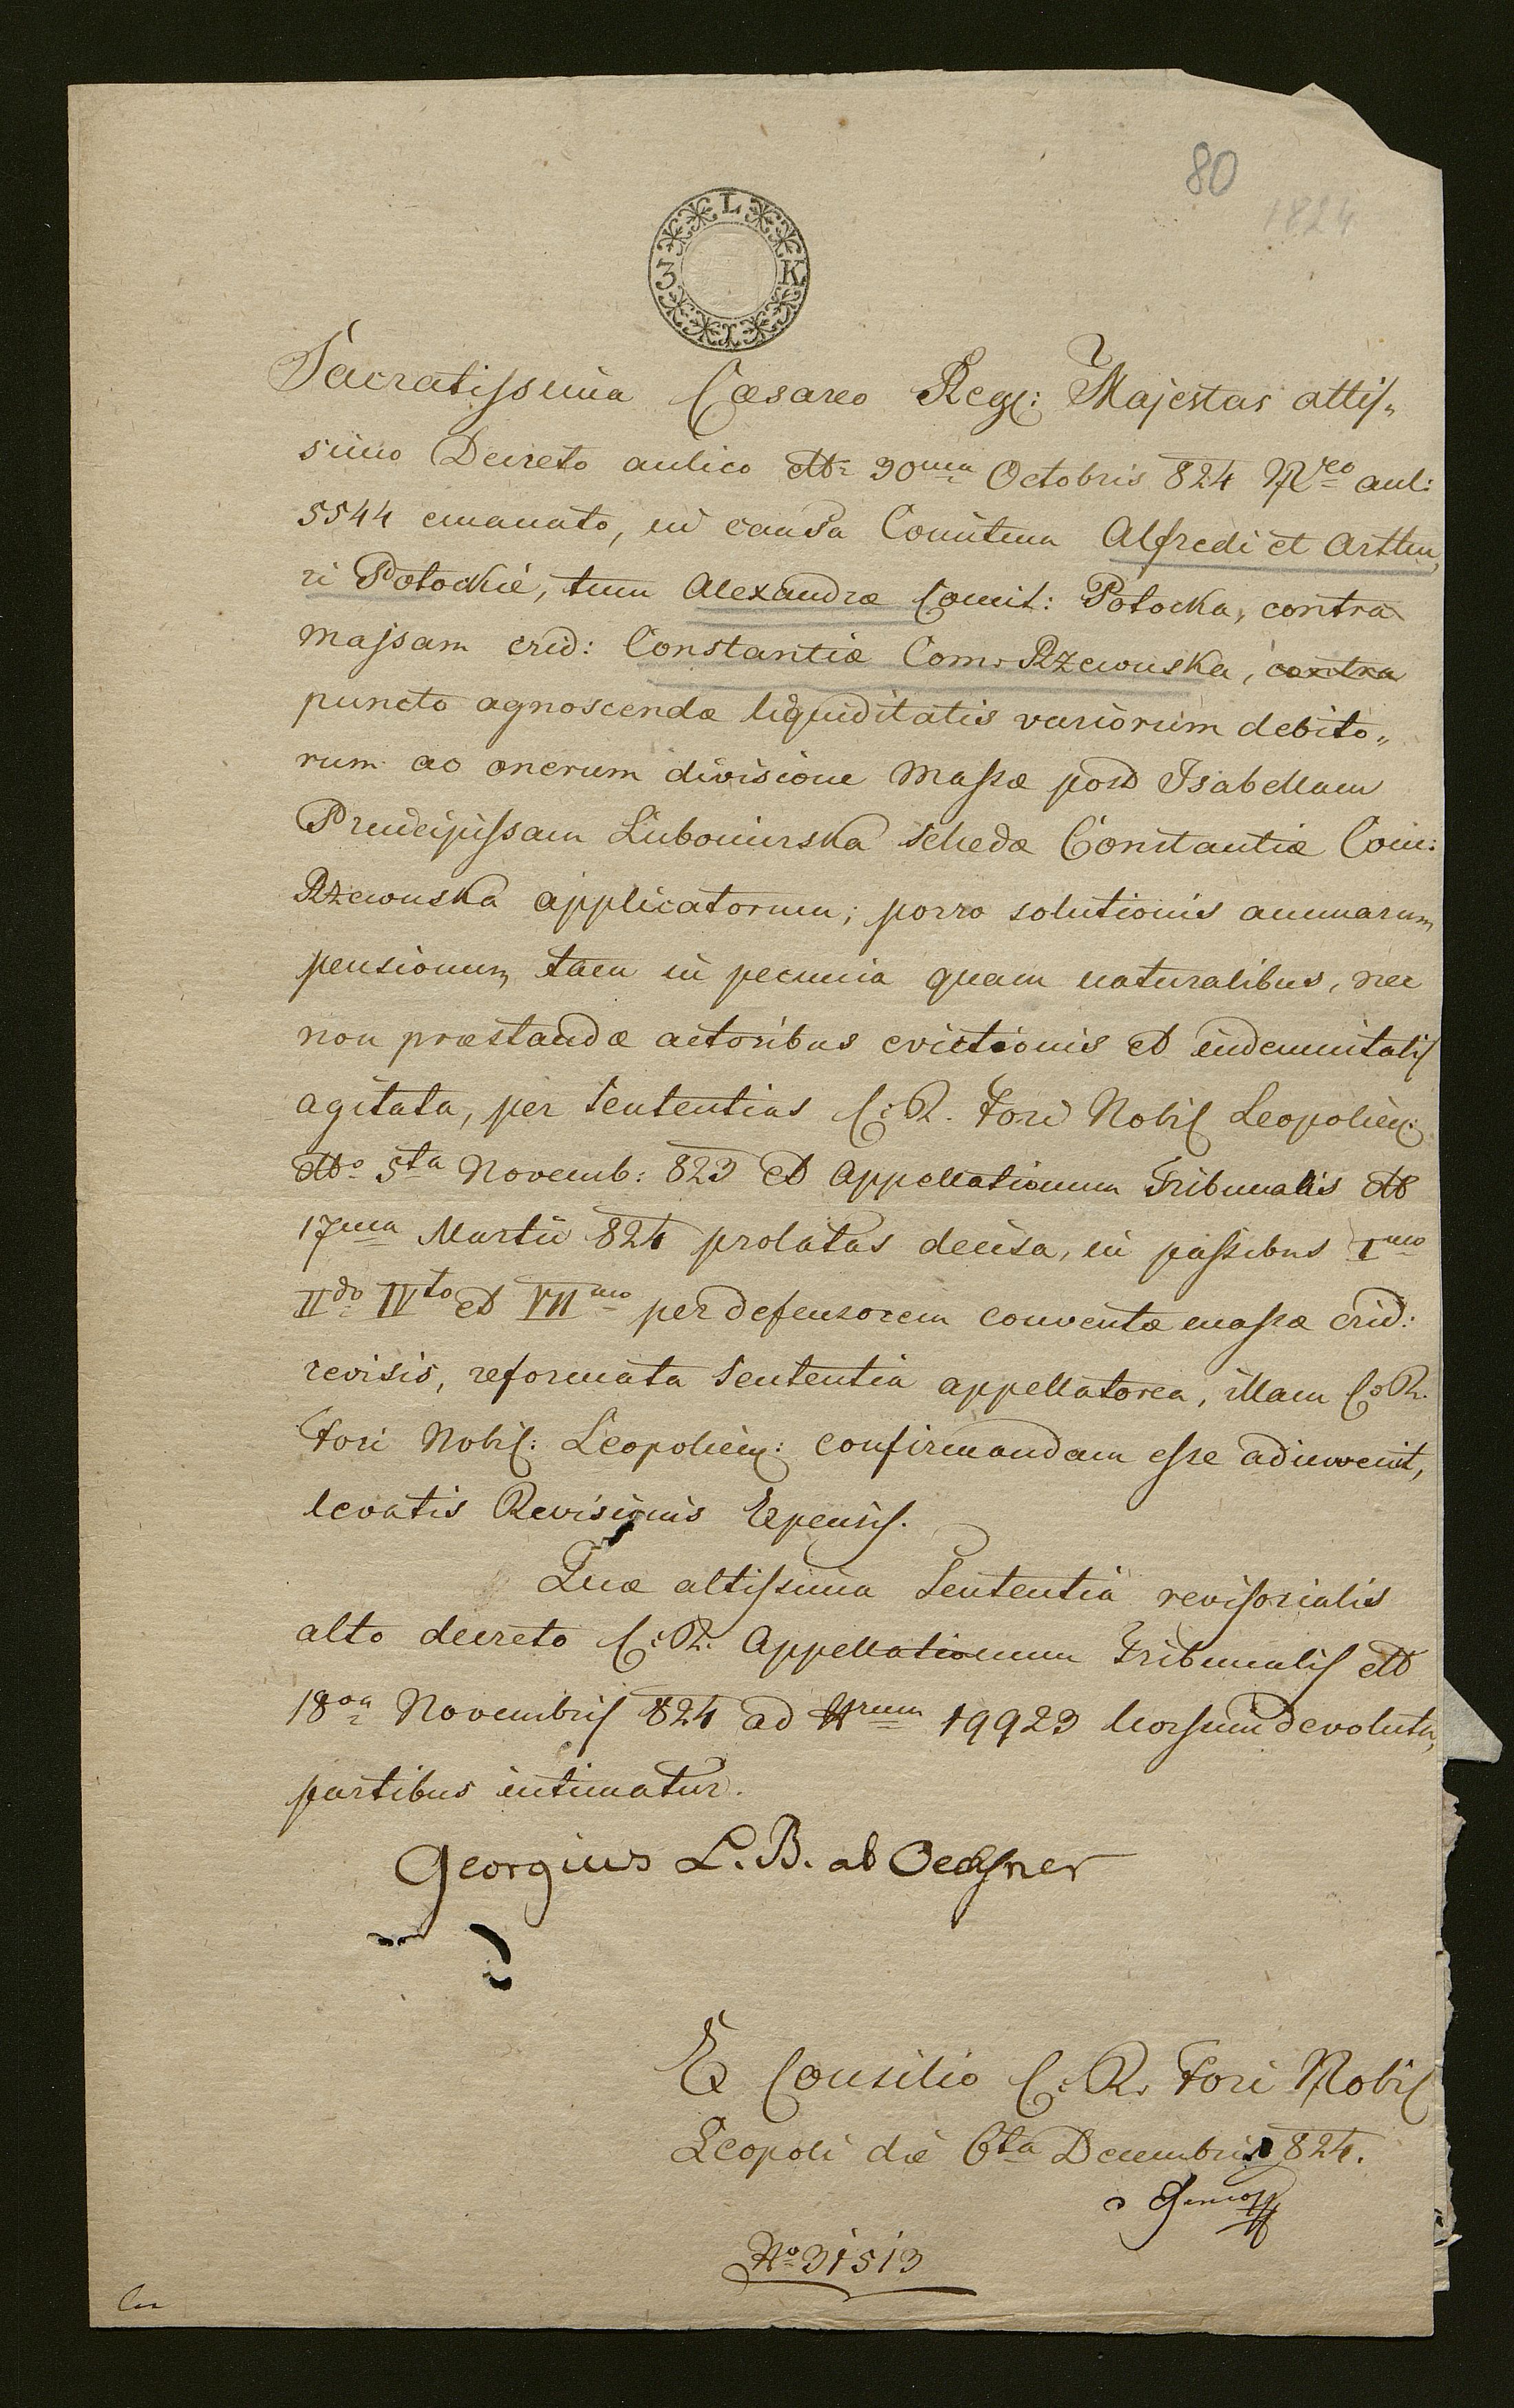 80
1824
L
3 K
I
Sacratissima Caesareo Reg: Majestas altis„
simo Decreto aulico ddto 30ma Octobris 824 Nro aul:
5544 emanato, in causa Comitum Alfredi et Arthu„
ri Potockie, tum Alexandrae Comit: Potocka, contra
massam crid: Constantiae Com. Rzewuska, contra
puncto agnoscendae liquiditatis variorum debito„
rum ac onerum divisione massae post Isabellam
Principissam Lubomirska schedae Constantiae Com:
Rzewuska applicatorum; porro solutionis annuarum
pensionum, tam in pecunia quam naturalibus, nec
non praestandae actoribus evictionis et indemnitatis
agitata, per Sententias C: R. Fori Nobil Leopolien:
ddto 5ta Novemb: 823 et Appellationum Tribunalis ddto
17ma Martii 824 prolatas decisa, in passibus Imo
IIdo IVto et VIImo per defensorem conventae massae crid:
revisis, reformata Sententia appellatorea, illam C: R.
Fori Nobil: Leopolien: confirmandam esse adinvenit,
levatis Revisionis Expensis.
Quae altissima Sententia revisorialis
alto decreto C: R. Appellationum Tribunalis ddto
18va Novembris 824 ad Nrum 19923 horsum devoluta,
partibus intimatur.
Georgius L. B. ab Oechsner
Ex Consilio C: R. Fori Nobil
Leopoli die 6ta Decembris 824.
No 31513